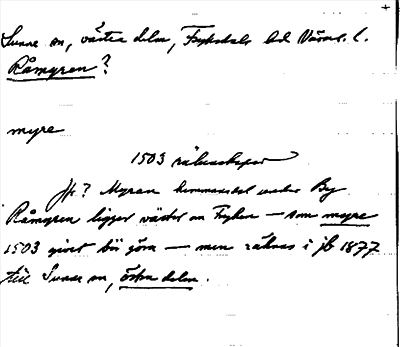 Sunne sn, västra delen, Fryksdals hd Värml. l.
Råmyren?
myre
1503 räkenskaper
Jfr? Myren hemmansdel under By
Råmyren ligger väster om Fryken – som myre
1503 givet bö göra – men räknas i jb 1877
till Sunne sn, östra delen.